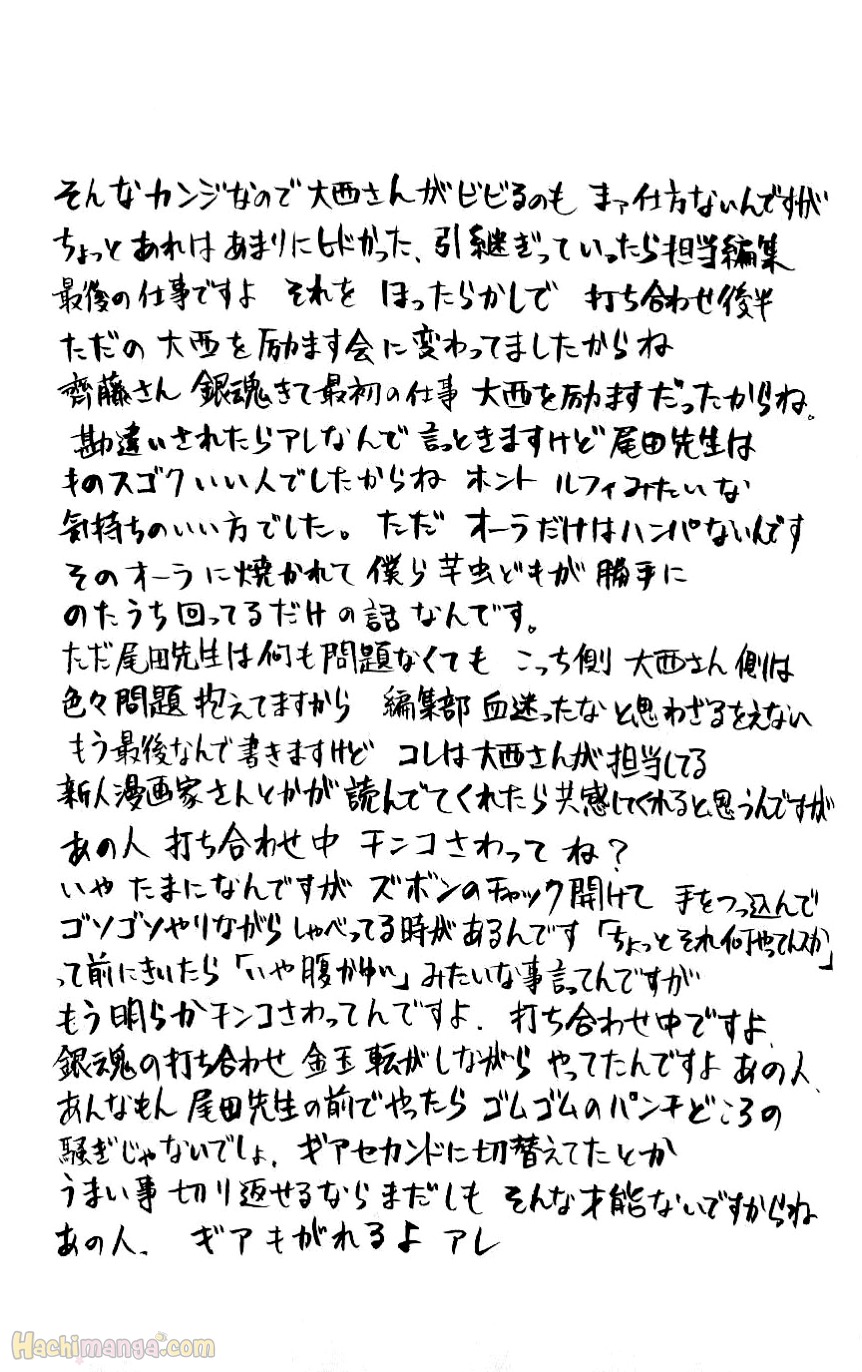 そんなカンジなので大西さんがビビるのも まァ仕方ないんですが
ちょっと あれは あまりにヒドかった、引継ぎっていったら担当編集
最後の仕事ですよ それを ほったらかしで 打ち合わせ後半
ただの 大西を励ます会に変わってましたからね
齊藤さん 銀魂きて最初の仕事 大西を励ますだったからね。
勘違いされたらアレなんで 言っときますけど 尾田先生は
ものスゴク いい人でしたからね ホント ルフィみたいな
気持ちのいい方でした。 ただ オーラだけはハンパないんです
そのオーラに焼かれて 僕ら芋虫どもが 勝手に
のたうち回ってるだけの話なんです。
ただ尾田先生は何も問題なくても こっち側 大西さん側は
色々問題抱えてますから 編集部 血迷ったなと思わざるをえない
もう最後なんで書きますけど コレは大西さんが担当してる
新人漫画家さんとかが読んでてくれたら共感してくれると思うんですが
あの人 打ち合わせ中 チンコさわってね?
いや たまになんですが ズボンのチャック開けて 手をつっ込んで
ゴソゴソやりながら しゃべってる時があるんです 「ちょっとそれ何やってんスか」
って前にきいたら 「いや腹かゆい」みたいな事言ってんですが
もう明らかチンコさわってんですよ、打ち合わせ中ですよ、
銀魂の打ち合わせ 金玉転がしながら やってたんですよ あの人、
あんなもん 尾田先生の前でやったら ゴムゴムのパンチどころの
騒ぎじゃないでしょ、ギアセカンドに切替えてたとか
うまい事切り返せるならまだしも そんな才能ないですからね
あの人、 ギアもがれるよ アレ
Hachimanga.com